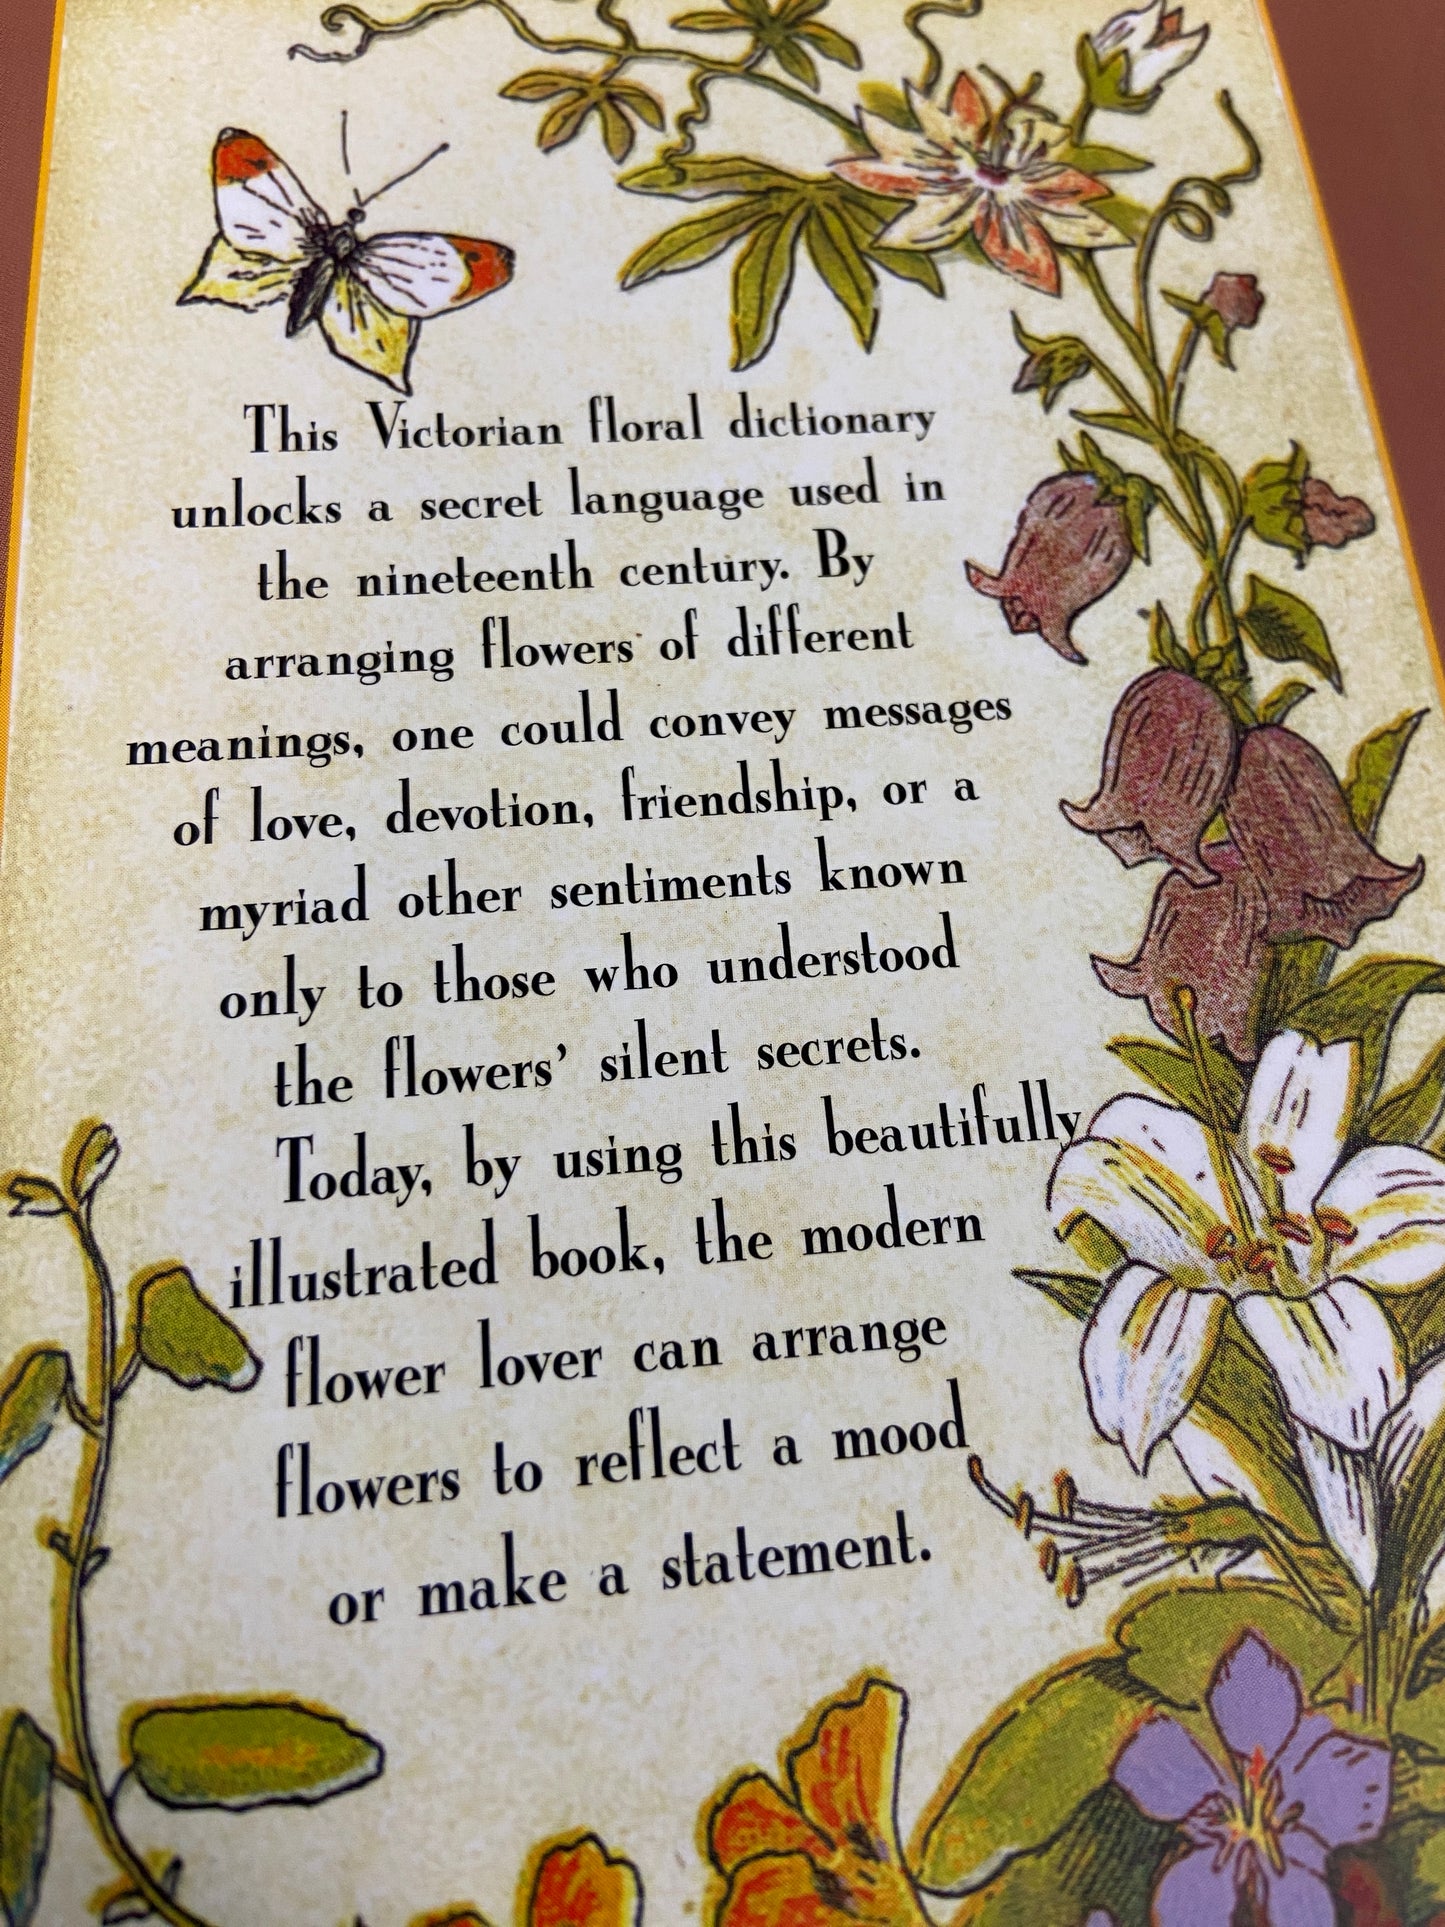 This Victorian floral dictionary
unlocks a secret language used in
the nineteenth century. By
arranging flowers of different
meanings, one could convey messages
of love, devotion, friendship, or a
myriad other sentiments known
only to those who understood
the flowers’ silent secrets.
Today, by using this beautifully
illustrated book, the modern
flower lover can arrange
flowers to reflect a mood
or make a statement.